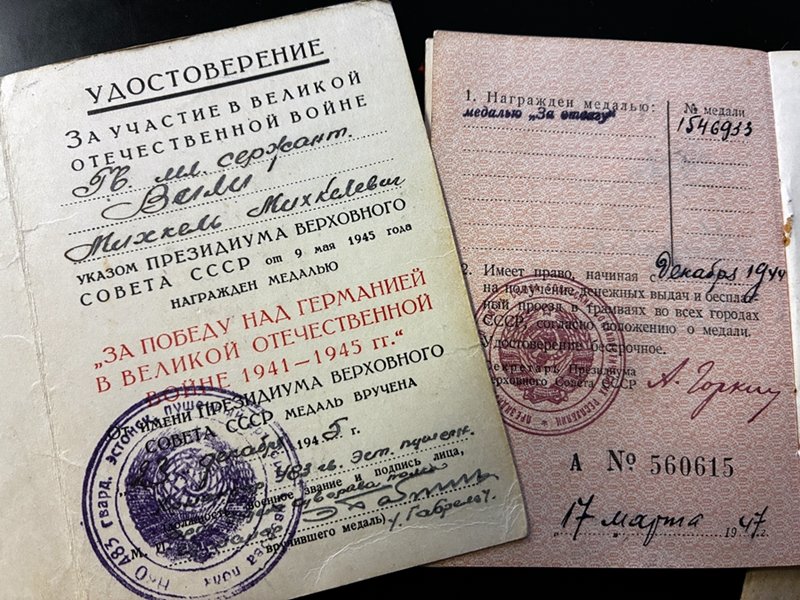 УДОСТОВЕРЕНИЕ
ЗА УЧАСТИЕ В ВЕЛИКОЙ
ОТЕЧЕСТВЕННОЙ ВОЙНЕ
Гв. мл. сержант.
Вели,
Михкель Михкелевич
УКАЗОМ ПРЕЗИДИУМА ВЕРХОВНОГО
СОВЕТА СССР от 9 мая 1945 года
НАГРАЖДЕН МЕДАЛЬЮ
„ЗА ПОБЕДУ НАД ГЕРМАНИЕЙ
В ВЕЛИКОЙ ОТЕЧЕСТВЕННОЙ
ВОЙНЕ 1941—1945 гг.“
ОТ имени ПРЕЗИДИУМА ВЕРХОВНОГО
СОВЕТА СССР МЕДАЛЬ ВРУЧЕНА
декабря 1945 г.
гв. Эст. пушечн.
воинское звание и подпись лица,
М. П.
вручившего медаль)
НКО 483 ГВАРД. ЭСТОНСК. ПУШЕЧНЫЙ
1. Награжден медалью:
медалью „За отвагу“
№ медали
1546933
2. Имеет право, начиная с декабря 1944
на получение денежных выдач и бесплат-
ный проезд в трамваях во всех городах
СССР, согласно положению о медали.
Удостоверение бессрочное.
Секретарь Президиума
Верховного Совета СССР А. Горкин
А № 560615
17 марта 1947 г.